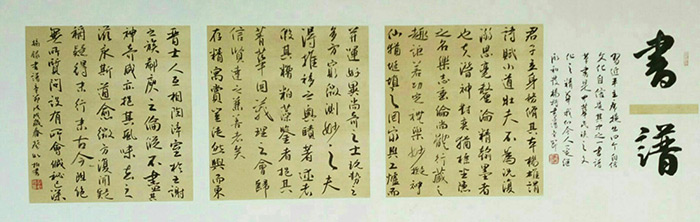 書譜
習近平主席提出四个自信
文化自信是其中之一書譜
君子立身務修其本楊雄謂
詩賦小道壯夫不為況復
溺思毫釐淪精翰墨者
也夫潛神對奕猶標坐隱
之名樂志垂綸尚體行藏之
趣詎若功宣禮樂妙擬神
仙猶埏埴之罔窮與工爐而
並運好異尚奇之士玩體勢之
多方窮微測妙之夫
得推移之奧賾著述者
假其糟粕藻鑒者挹其
菁華固義理之會歸
信賢達之兼善者矣
存精寓賞豈徒然與而東
晉士人互相陶淬室於王謝
之族郗庾之倫縱不盡其
神奇咸亦挹其風味去之
滋永斯道愈微方復聞疑
稱疑得末行末古今阻絕
無所質問設有所會緘秘已深
書譜章節戊戌金秋